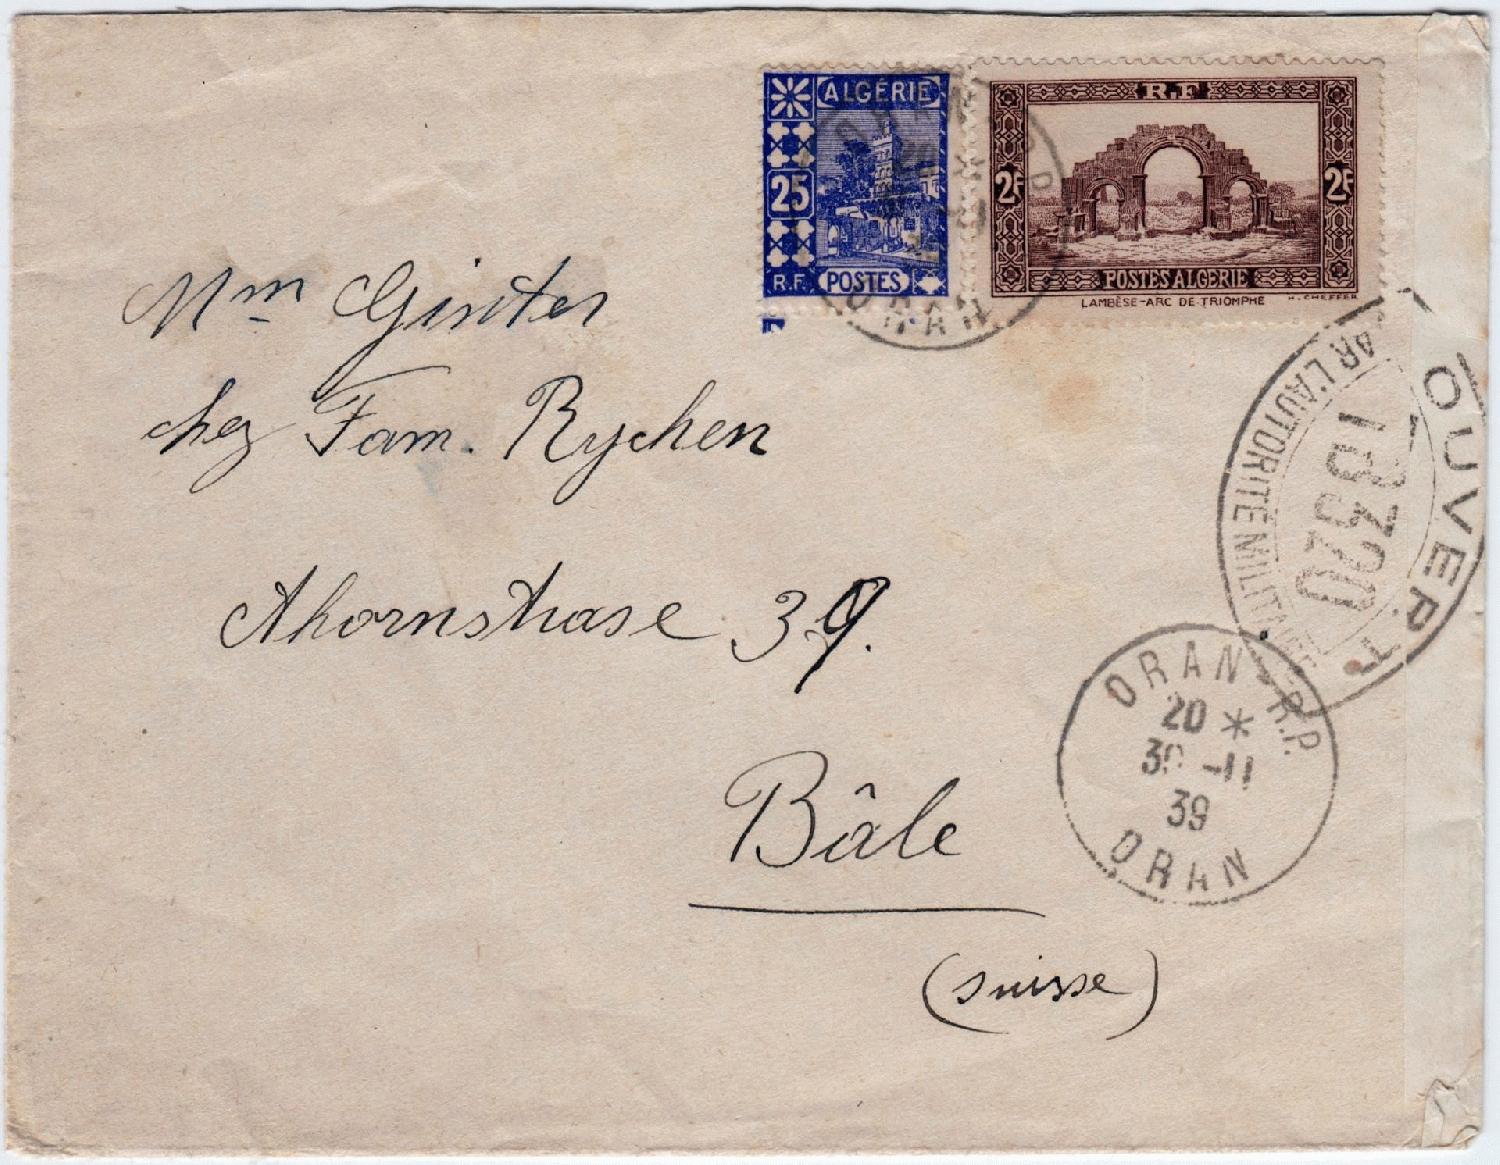 ALGÉRIE
25
R.F. POSTES
R.F
2F 2F
POSTES ALGERIE
LAMBÈSE-ARC DE-TRIOMPHE H. CHEFFER
ORAN
Mm Ginter
chez Fam. Rychen
Ahornstrase 39.
Bâle
(suisse)
OUVERT
PAR L'AUTORITÉ MILITAIRE
ORAN-R.P.
20 *
-11
39
ORAN